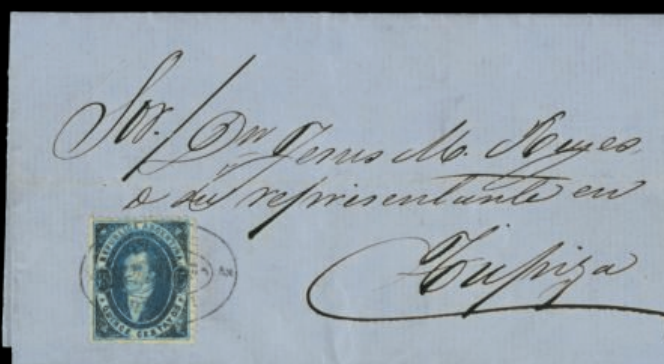 Sor. / Dn Jesus M. Reyes
o su representante en
Tupiza
REPUBLICA ARGENTINA
QUINCE CENTAVOS